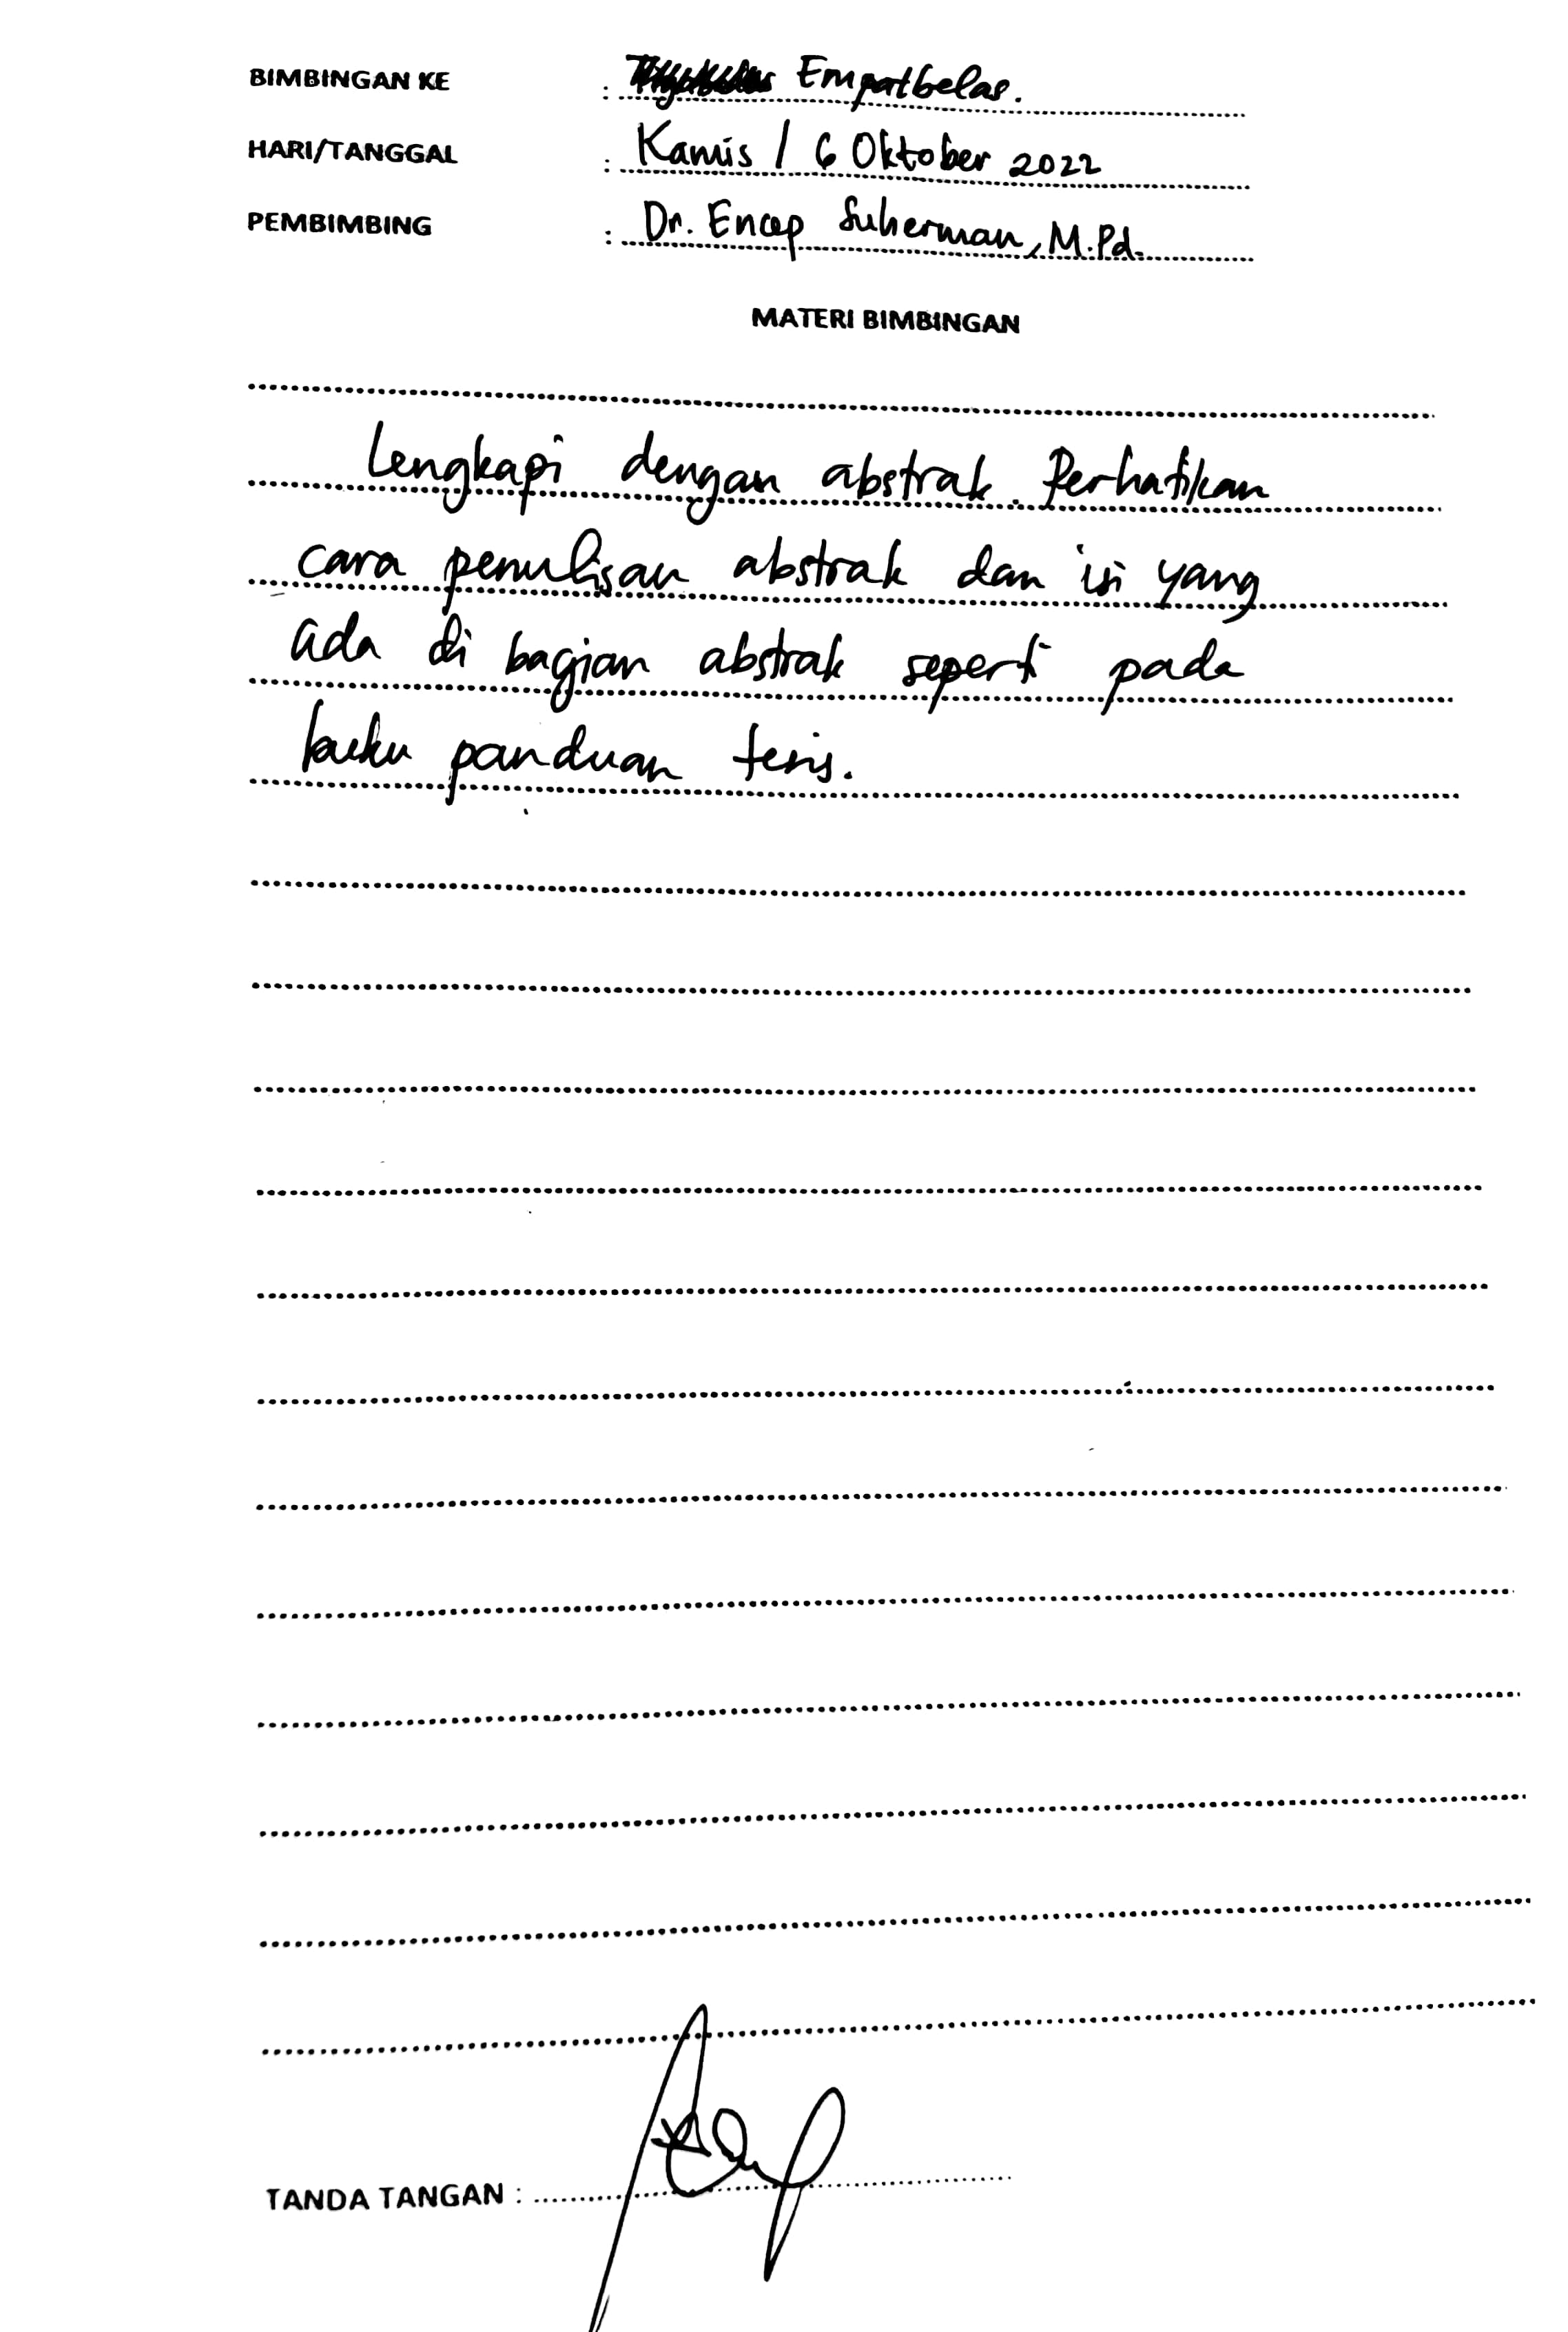 BIMBINGAN KE : Empatbelas.
HARI/TANGGAL : Kamis / 6 Oktober 2022
PEMBIMBING : Dr. Encep Suherman, M.Pd.
MATERI BIMBINGAN
Lengkapi dengan abstrak. Perhatikan
cara penulisan abstrak dan isi yang
ada di bagian abstrak seperti pada
buku panduan tesis.
TANDA TANGAN :